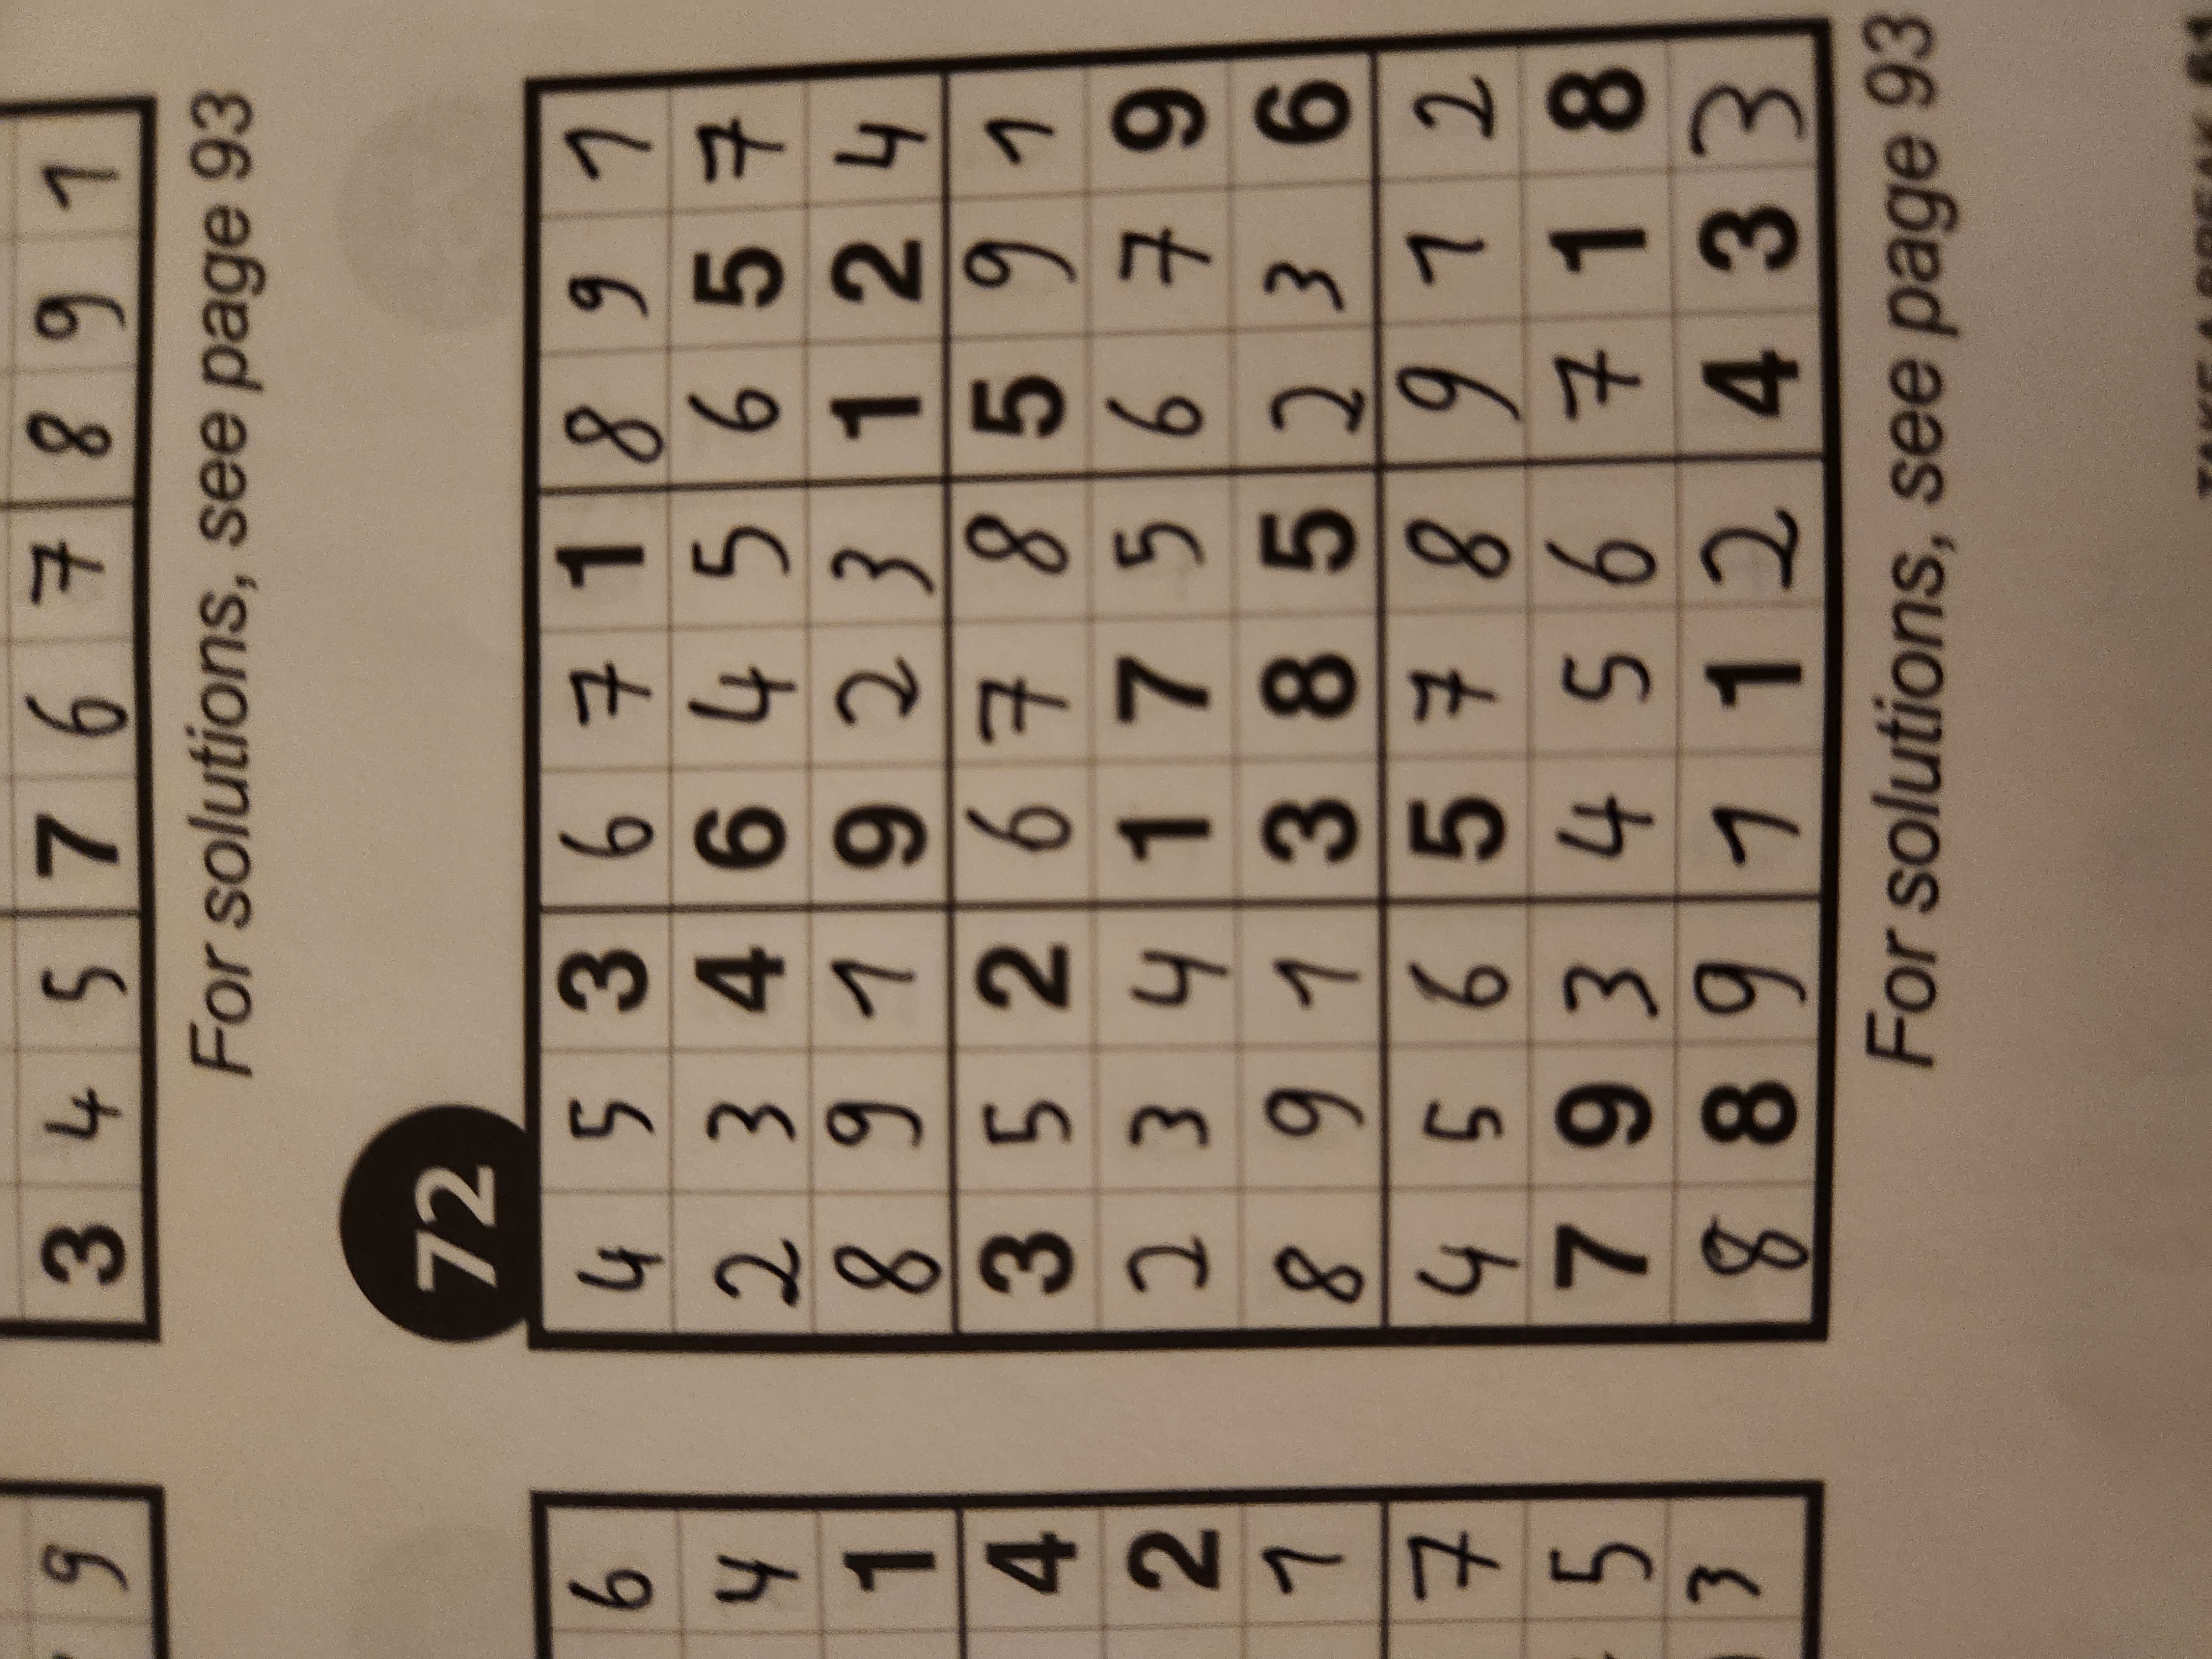 9 3 4 5 7 6 7 8 9 1
For solutions, see page 93
72
6 4 5 3 6 7 1 8 9 1
4 2 3 4 6 4 5 6 5 7
1 8 9 1 9 2 3 1 2 4
4 3 5 2 6 7 8 5 9 1
2 2 3 4 1 7 5 6 7 9
1 8 9 1 3 8 5 2 3 6
7 4 5 6 5 7 8 9 1 2
5 7 9 3 4 5 6 7 1 8
3 8 8 9 1 1 2 4 3 3
For solutions, see page 93